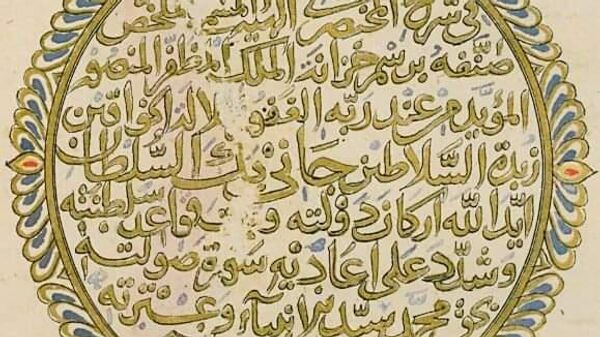 في شرح المختصر
صنفه برسم خزانة الملك المظفر المنصور
المؤيد من عند ربه الغفور لا له الخواقين
زبدة السلاطين جاني بك السلطان
ايد الله اركان دولته و قواعد سلطنته
وشدد على اعاديه سورة صولته
محمد سيد الانبياء وعترته